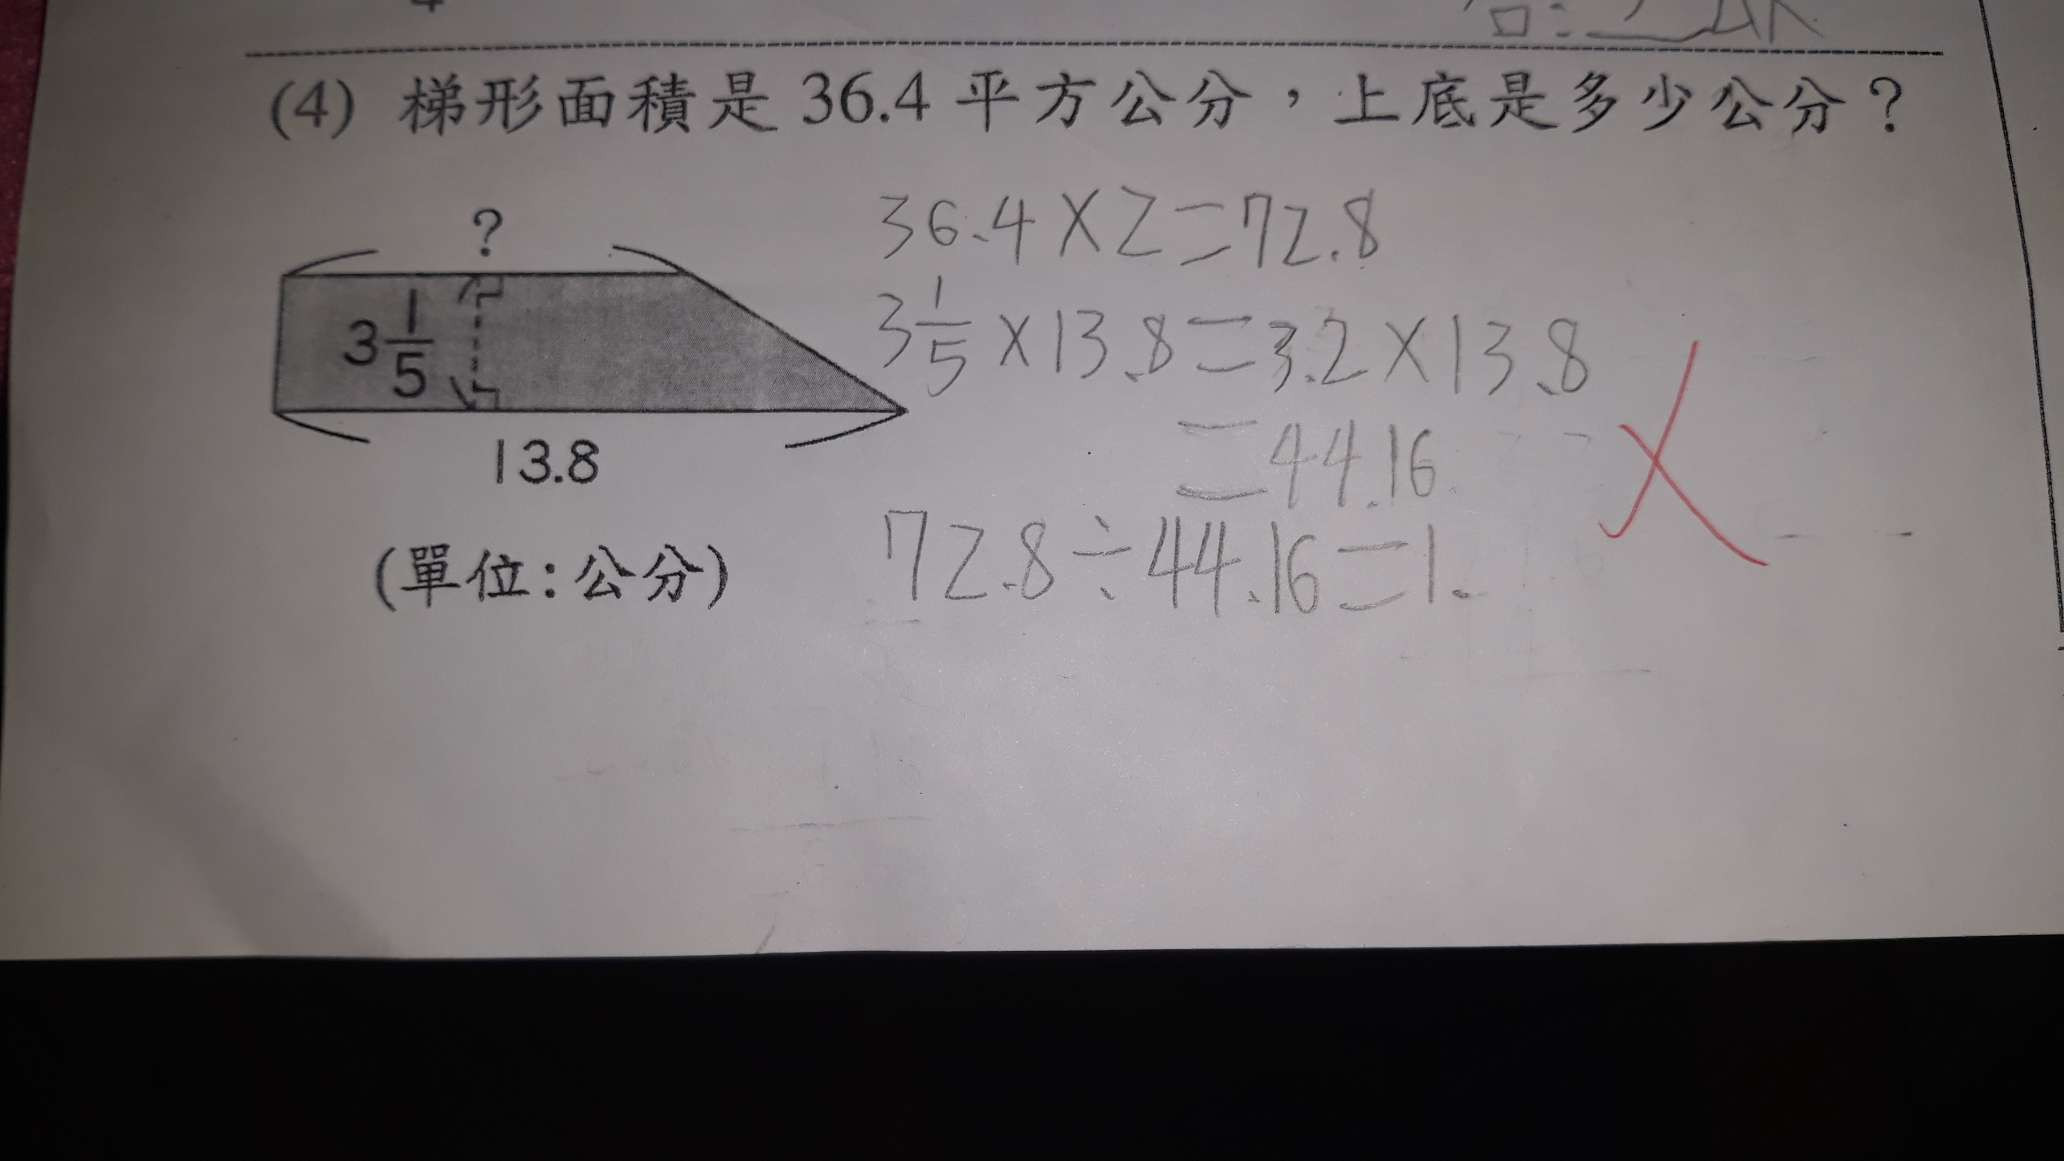 (4) 梯形面積是 36.4 平方公分，上底是多少公分？
?
3 1/5
13.8
(單位：公分)
36.4×2=72.8
3 1/5×13.8=3.2×13.8
=44.16
72.8÷44.16=1.